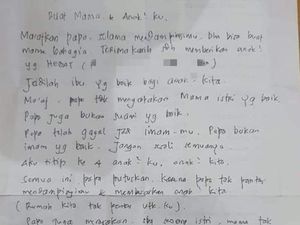 Buat Mama & Anak² ku.
Maafkan papa. selama mendampingimu. blm bisa buat
mama bahagia. Terima kasih tlh memberikan anak²
yg HEBAT (
Jadilah ibu yg baik bagi anak² kita.
Ma'af. papa tak mengatakan Mama istri yg baik.
Papa juga bukan suami yg baik.
Papa telah gagal jdi imam-mu. Papa bukan
imam yg baik. Jangan sesali semuanya.
Aku titip ke 4 anak² ku, anak² kita.
Semua ini papa putuskan. karena papa tak pantas
mendampingimu & membesarkan anak² kita
(Rumah kita tak pantas utk ku).
Papa juga merasakan. sbg seorang istri, mama tak